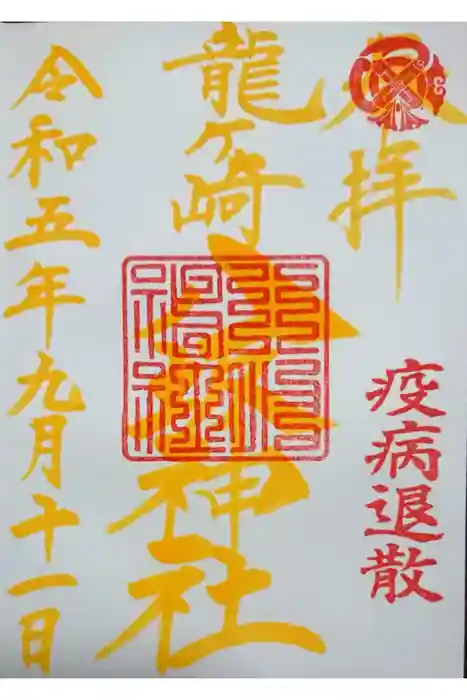 奉拝
疫病退散
龍ヶ崎
神社
令和五年九月十一日